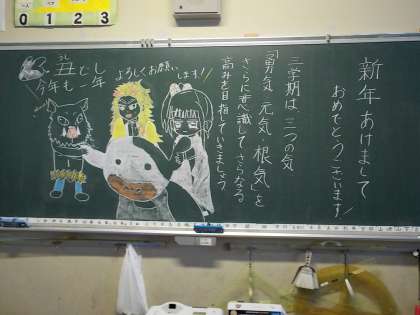 0 1 2 3
新年あけまして
おめでとうございます!
三学期は、三つの気
「勇気、元気、根気」を
さらに意識してさらなる
高みを目指していきましょう
丑どし
うし
今年も一年
よろしくお願い
します!!